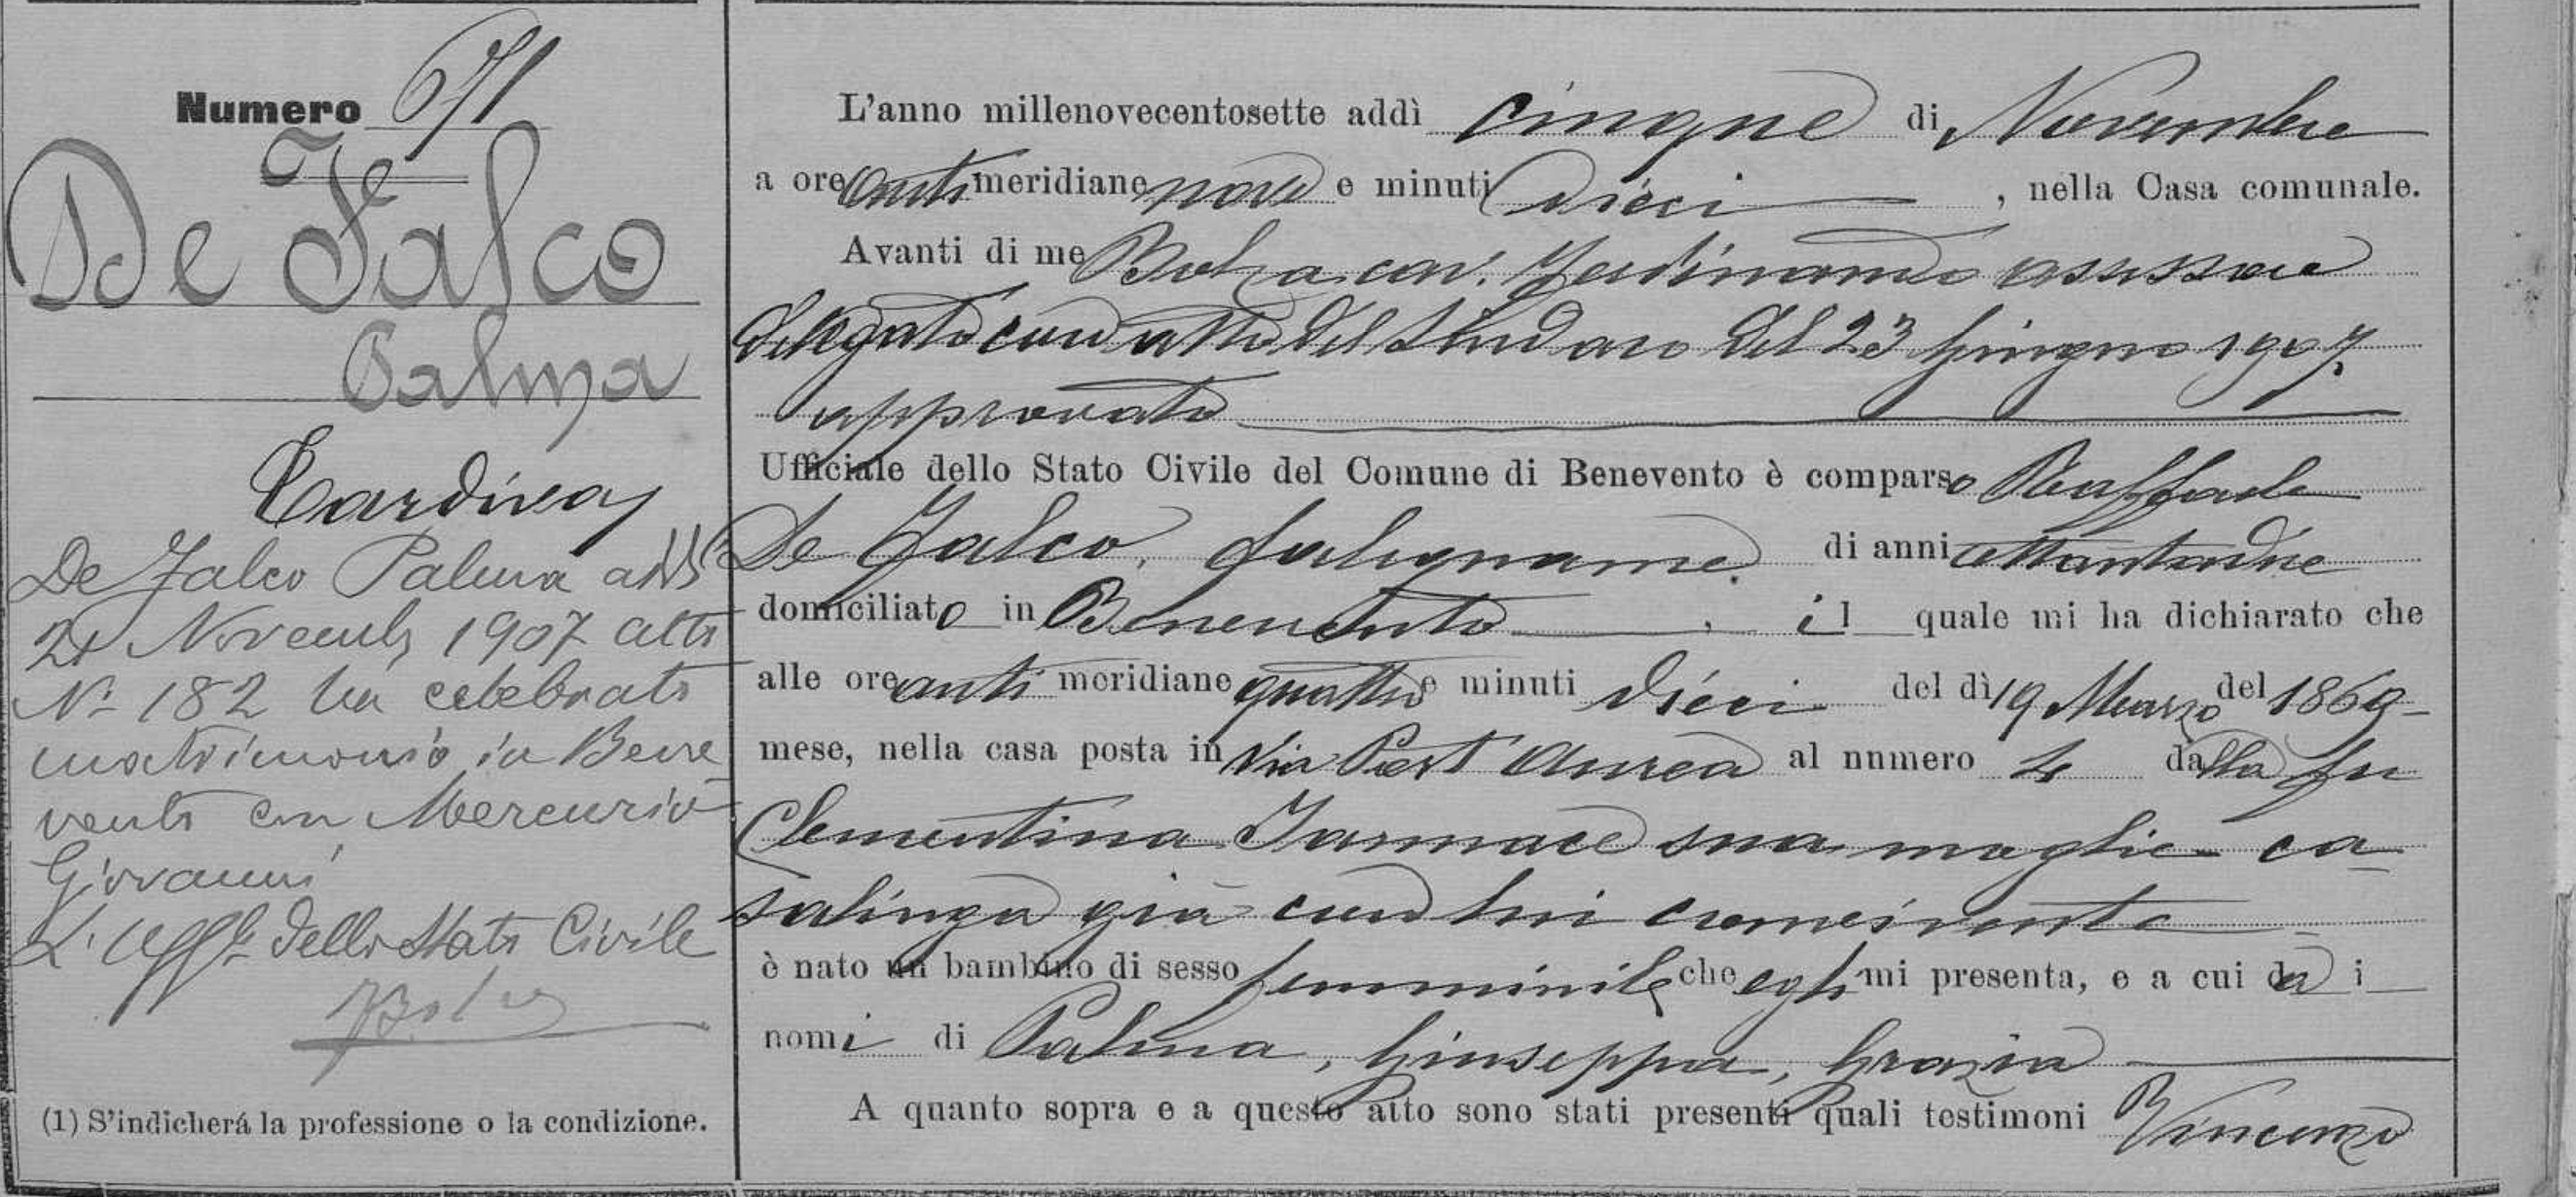 Numero 671
De Falco
Palma
Tardiva
De Falco Palma addì
21 Novemb, 1907 atto
N. 182 ha celebrato
matrimonio in Bene
vento con Mercurio
Giovanni
L'Uffle dello Stato Civile
(1) S'indicherá la professione o la condizione.
L'anno millenovecentosette addì cinque di Novembre
a ore anti meridiane nove e minuti dieci, nella Casa comunale.
Avanti di me Bolza cav. Ferdinando assessore
delegato con atto del Sindaco del 23 Giugno 1907
approvato
Ufficiale dello Stato Civile del Comune di Benevento è comparso Raffaele
De Falco, falegname di anni
domiciliato in Benevento, il quale mi ha dichiarato che
alle ore anti meridiane quattro e minuti dieci del dì 19 Marzo del 1869
mese, nella casa posta in Via Port'Aurea al numero 4 dalla fu
Clementina Iannace sua moglie ca
salinga già con lui convivente
è nato un bambino di sesso femminile che egli mi presenta, e a cui dà i
nomi di Palma, Giuseppa, Grazia
A quanto sopra e a questo atto sono stati presenti quali testimoni Vincenzo